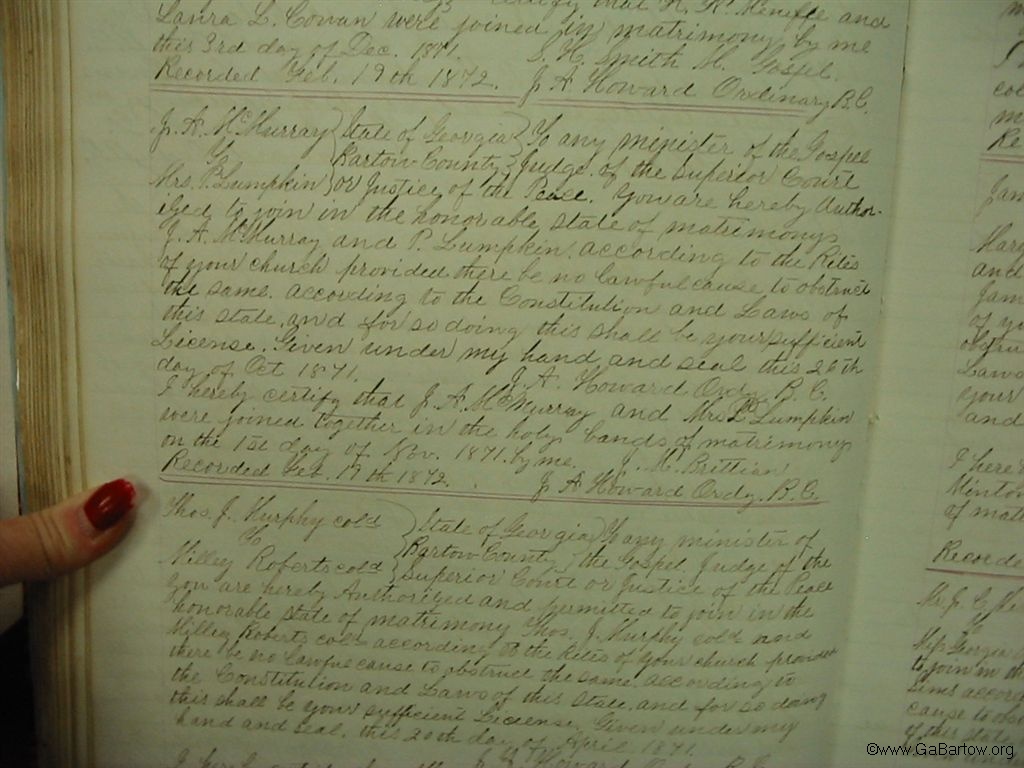 certify that H. H. Menefee and
Laura L. Cowan were joined in matrimony by me
this 3rd day of Dec. 1871. S. H. Smith M. Gospel.
Recorded Feb. 19th 1872. J A Howard Ordinary B.C.
J. A. McMurray State of Georgia To any minister of the Gospel
& Bartow County Judge of the Superior Court
Mrs. P. Lumpkin or Justice of the Peace. You are hereby Author-
ized to join in the honorable state of matrimony
J. A. McMurray and P. Lumpkin. according to the Rites
of your church provided there be no lawful cause to obstruct
the same. according to the Constitution and Laws of
this state, and for so doing this shall be your sufficient
License. Given under my hand and seal this 26th
day of Oct 1871. J. A. Howard Ordy. B. C.
I hereby certify that J. A. McMurray and Mrs. P Lumpkin
were joined together in the holy bands of matrimony
on the 1st day of Nov. 1871. by me. J. M. Brittian
Recorded Feb. 19th 1872. J A Howard Ordy. B. C.
Thos. J. Murphy cold State of Georgia To any minister of
& Bartow County the Gospel Judge of the
Milley Roberts cold Superior Court or Justice of the Peace
You are hereby Authorized and permitted to join in the
honorable state of matrimony Thos. J. Murphy cold and
Milley Roberts cold according to the Rites of your church provided
there be no lawful cause to obstruct the same. according to
the Constitution and Laws of this State, and for so doing
this shall be your sufficient License. Given under my
hand and seal, this 20th day of April 1871.
©www.GaBartow.org